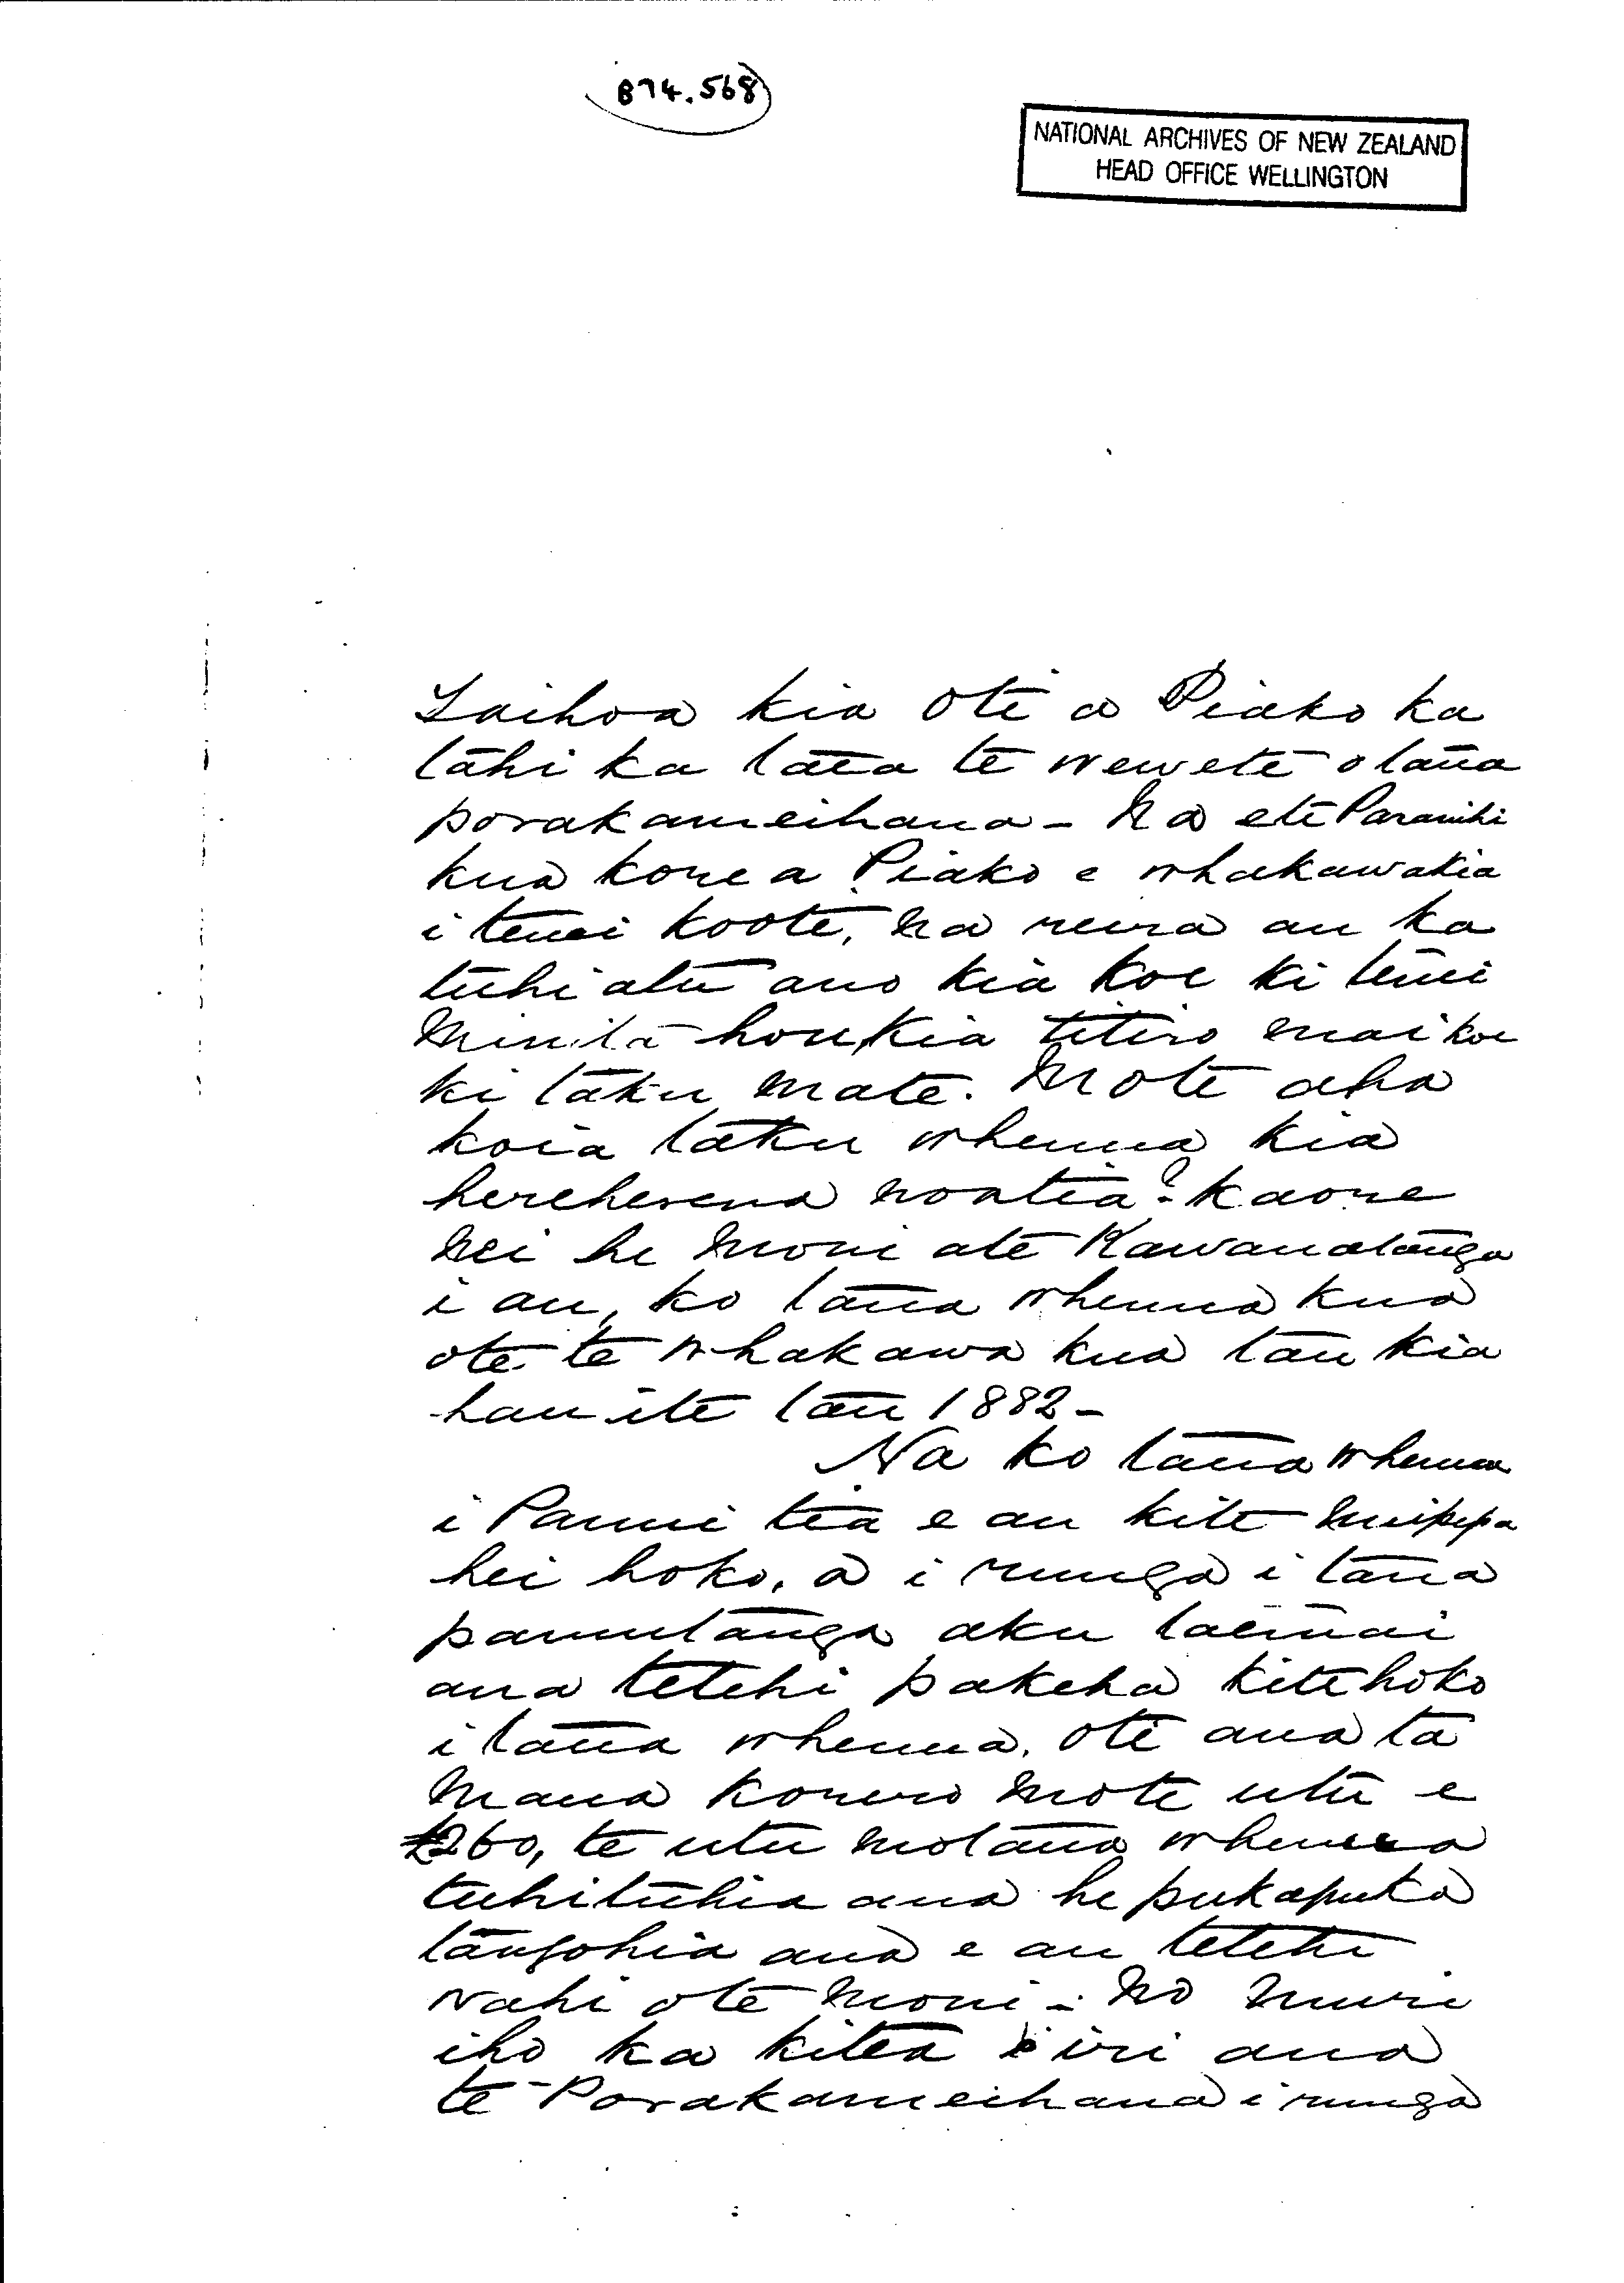 874.568
NATIONAL ARCHIVES OF NEW ZEALAND
HEAD OFFICE WELLINGTON
Taihoa kia oti a Piako ka
tahi ka taea te wewete o taua
porakameihana - Na e te Paraihi
kua kore a Piako e whakawakia
i tenei koote, na reira au ka
tuhi atu ano kia koe ki tenei
Minita hou, kia titiro mai koe
ki taku mate. Mote aha
koia taku whenua kia
hereherena noatia? - kaore
nei he moni ate Kawanatanga
i au, ko taua whenua kua
oti te whakawa kua tau kia
hau ite tau 1882 -
Na ko taua whenua
i Panui tia e au kite Nuipepa
hei hoko, a i runga i taua
panuitanga aku tae mai
ana tetehi pakeha kite hoko
i taua whenua, oti ana ta
maua korero mote utu e
£260, te utu motaua whenua
tuhituhia ana he pukapuka
tangohia ana e au tetehi
wahi ote moni - No muri
iho ka kitea i iri ana
te Porakameihana i runga